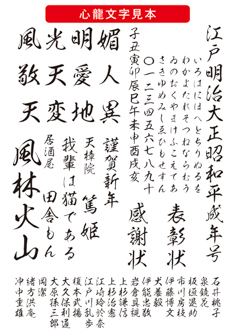 心龍文字見本
江戸明治大正昭和平成年号
いろはにほへとちりぬるを
わかよたれそつねならむう
ゐのおくやまけふこえてあ
さきゆめみしゑひもせすん
〇一二三四五六七八九十
子丑寅卯辰巳午未申酉戌亥
表彰状
感謝状
謹賀新年
天樟院 篤姫
我輩は猫である
居酒屋 田舎もん
媚人異
明愛地
光天変
風敬天
風林火山
石井桃子
泉鏡花
板垣退助
市川房枝
伊藤博文
犬養毅
伊能忠敬
岩倉具視
上杉謙信
上杉治憲
江崎玲於奈
江戸川乱歩
榎本武揚
大久保利通
大原孫三郎
岡潔
緒方洪庵
沖中重雄